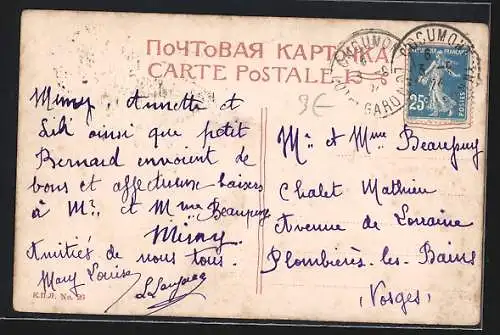 ПОЧТОВАЯ КАРТОЧКА
CARTE POSTALE
ROCUMO
GARONNE
25c
3€
Mimy, Annette et
Lili ainsi que petit
Bernard envoient de
bons et affectueux baisers
à Mr. et Mme Beaupuy
Mimy.
Amitiés de nous tous.
Mary Louise
Mr et Mme Beaupuy
Chalet Mathieu
Avenue de Lorraine
Plombières-les-Bains
(Vosges)